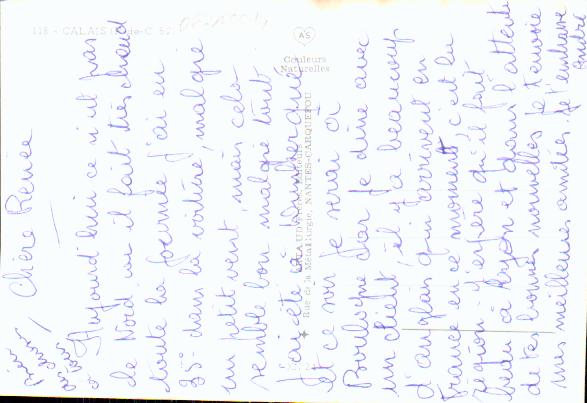 118 - CALAIS (P.-de-C. 62)
Couleurs
Naturelles
ARTAUD
Rue de la Métallurgie, NANTES-CARQUEFOU
Chère Renée
Aujourd'hui ce n'est pas
le Nord car il fait très chaud
toute la journée j'ai eu
35° dans la voiture, malgré
un petit vent, mais cela
semble bon malgré tout
J'ai été à
et ce soir je serai à
Boulogne car je dîne avec
un client, et il y a beaucoup
d'anglais qui arrivent en
France en ce moment, c'est la
région. J'espère qu'il fait
beau à Lyon et dans l'attente
de tes bonnes nouvelles je t'envoie
mes meilleures amitiés je t'embrasse
André